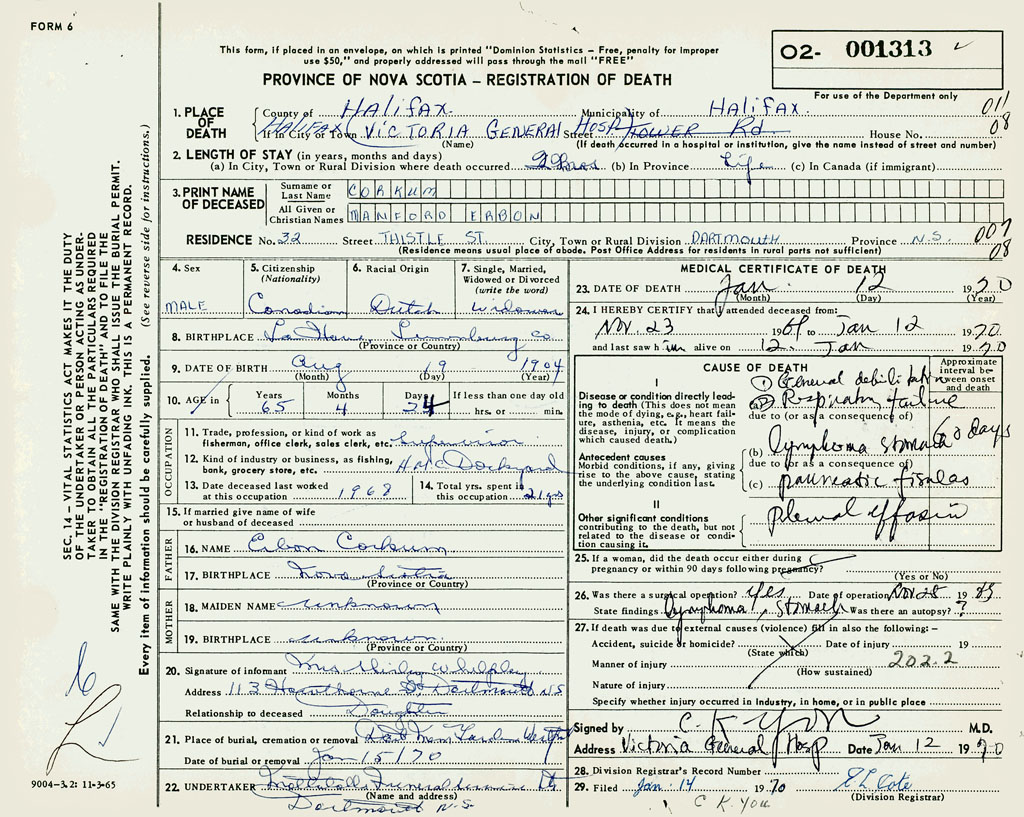 FORM 6
This form, if placed in an envelope, on which is printed "Dominion Statistics – Free, penalty for improper
use $50," and properly addressed will pass through the mail "FREE"
PROVINCE OF NOVA SCOTIA – REGISTRATION OF DEATH
02- 001313
For use of the Department only
SEC. 14 – VITAL STATISTICS ACT MAKES IT THE DUTY
OF THE UNDERTAKER OR PERSON ACTING AS UNDER-
TAKER TO OBTAIN ALL THE PARTICULARS REQUIRED
IN THE "REGISTRATION OF DEATH" AND TO FILE THE
SAME WITH THE DIVISION REGISTRAR WHO SHALL ISSUE THE BURIAL PERMIT.
WRITE PLAINLY WITH UNFADING INK. THIS IS A PERMANENT RECORD.
Every item of information should be carefully supplied. (See reverse side for instructions.)
1. PLACE OF DEATH
County of Halifax Municipality of Halifax 011
Halifax If in City or Town VICTORIA GENERAL Street Hosp Tower Rd House No. 08
(Name) (If death occurred in a hospital or institution, give the name instead of street and number)
2. LENGTH OF STAY (in years, months and days)
(a) In City, Town or Rural Division where death occurred (b) In Province Life (c) In Canada (if immigrant)
3. PRINT NAME OF DECEASED
Surname or Last Name CORKUM
All Given or Christian Names MANFORD ERBON
RESIDENCE No. 32 Street THISTLE ST. City, Town or Rural Division DARTMOUTH Province N.S. 007
(Residence means usual place of abode. Post Office Address for residents in rural parts not sufficient) 08
4. Sex MALE
5. Citizenship (Nationality) Canadian
6. Racial Origin Dutch
7. Single, Married, Widowed or Divorced (write the word) Widower
8. BIRTHPLACE La Have Lunenburg Co
(Province or Country)
9. DATE OF BIRTH Aug 19 1904
(Month) (Day) (Year)
10. AGE in Years 65 Months 4 Days 24 If less than one day old hrs. or min.
OCCUPATION
11. Trade, profession, or kind of work as fisherman, office clerk, sales clerk, etc. Supervisor
12. Kind of industry or business, as fishing, bank, grocery store, etc. HMC Dockyard
13. Date deceased last worked at this occupation 1968
14. Total yrs. spent in this occupation 21 yrs
15. If married give name of wife or husband of deceased
FATHER
16. NAME Erbon Corkum
17. BIRTHPLACE Nova Scotia
(Province or Country)
MOTHER
18. MAIDEN NAME unknown
19. BIRTHPLACE unknown
(Province or Country)
20. Signature of informant Mrs Shirley Whelpley
Address 113 Hawthorne St Dartmouth N.S
Relationship to deceased Daughter
21. Place of burial, cremation or removal
Date of burial or removal Jan 15/70
22. UNDERTAKER Funeral
(Name and address)
Dartmouth N.S.
MEDICAL CERTIFICATE OF DEATH
23. DATE OF DEATH Jan. 12 1970
(Month) (Day) (Year)
24. I HEREBY CERTIFY that I attended deceased from:
Nov. 23 1969 to Jan 12 1970
and last saw him alive on 12 Jan 1970
CAUSE OF DEATH
Approximate interval between onset and death
I
Disease or condition directly leading to death (This does not mean the mode of dying, e.g., heart failure, asthenia, etc. It means the disease, injury, or complication which caused death.)
(1) General debilitation
(a) (2) Respiratory failure
due to (or as a consequence of)
Antecedent causes
Morbid conditions, if any, giving rise to the above cause, stating the underlying condition last.
(b) lymphoma stomach 60 days
due to (or as a consequence of)
(c) pancreatic fistulas
II
Other significant conditions contributing to the death, but not related to the disease or condition causing it.
pleural effusion
25. If a woman, did the death occur either during pregnancy or within 90 days following pregnancy?
(Yes or No)
26. Was there a surgical operation? yes Date of operation Nov 28 19
State findings Lymphoma, Stomach Was there an autopsy? ?
27. If death was due to external causes (violence) fill in also the following: –
Accident, suicide or homicide? Date of injury 19
(State which)
Manner of injury 202.2
(How sustained)
Nature of injury
Specify whether injury occurred in industry, in home, or in public place
Signed by C. K. You M.D.
Address Victoria General Hosp Date Jan 12 1970
28. Division Registrar's Record Number
29. Filed Jan. 14 1970 E L Cote
(Division Registrar)
C K. YOU
9004-3.2: 11-3-65